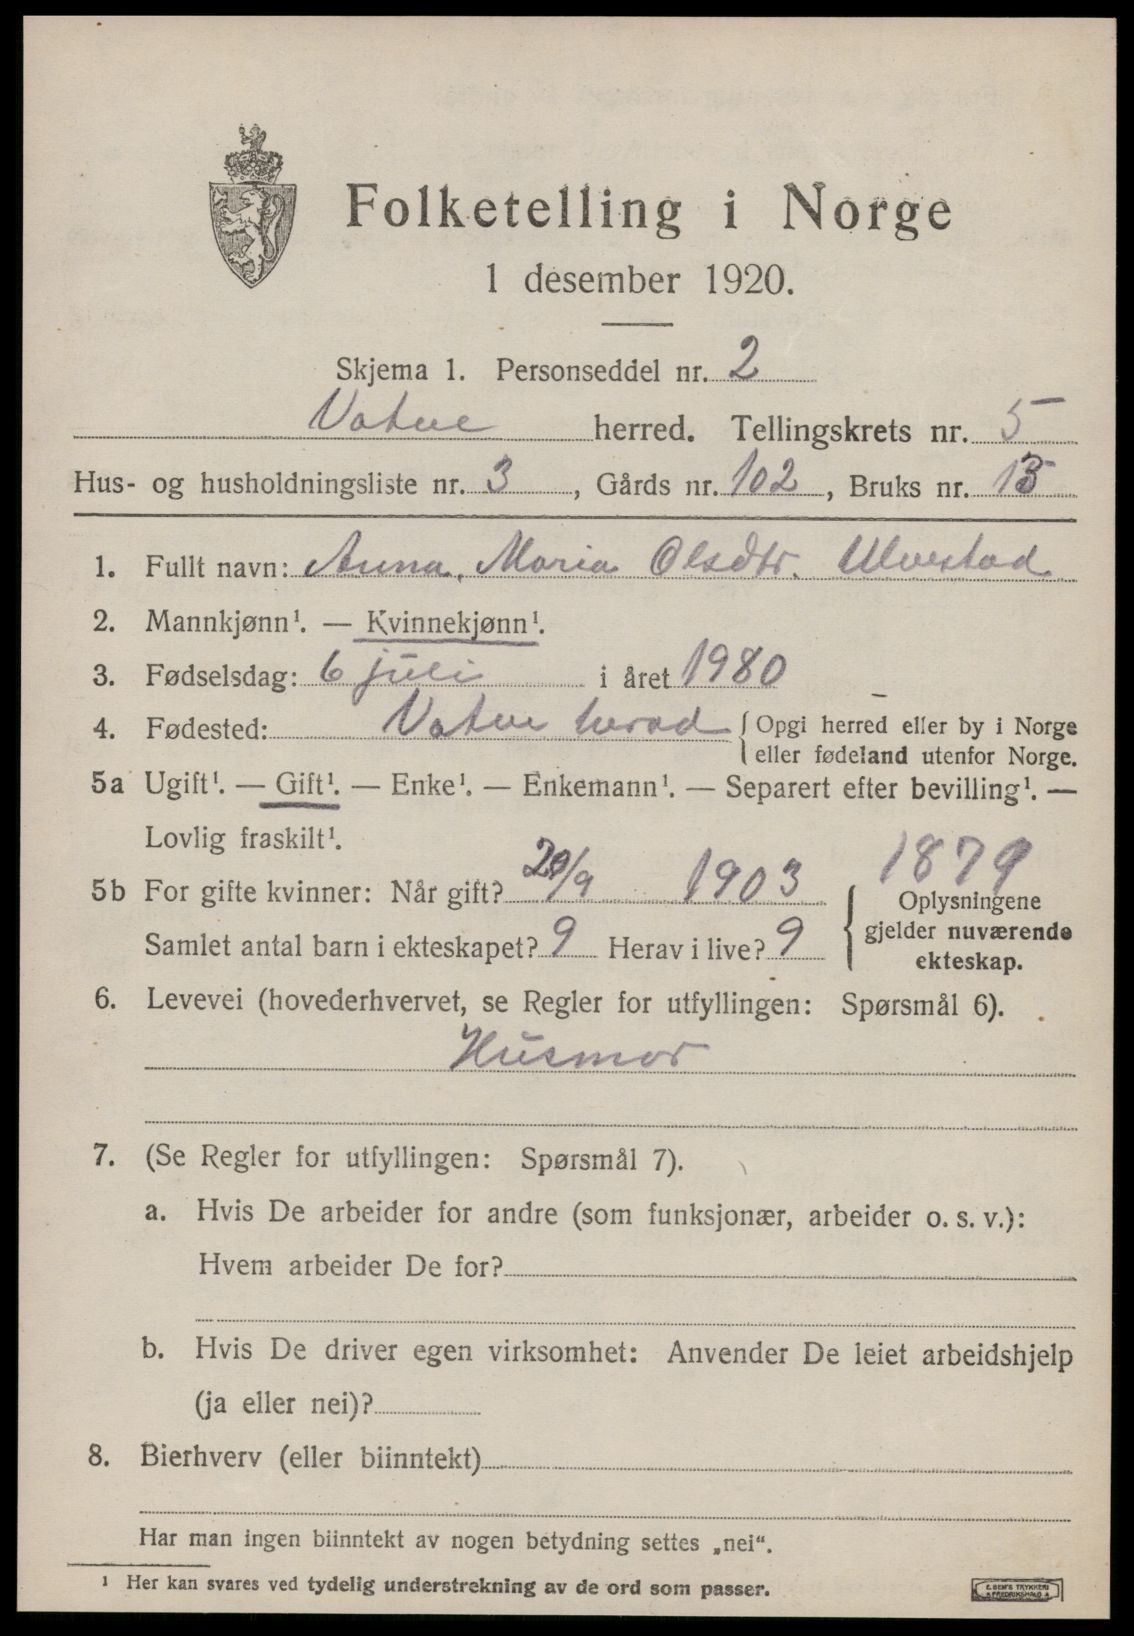 Folketelling i Norge
1 desember 1920.
Skjema 1. Personseddel nr. 2
Vatne herred. Tellingskrets nr. 5
Hus- og husholdningsliste nr. 3, Gårds nr. 102, Bruks nr. 13
1. Fullt navn: Anna Maria Olsdtr. Ulvestad
2. Mannkjønn¹. — Kvinnekjønn¹.
3. Fødselsdag: 6 juli i året 1980
4. Fødested: Vatne herad { Opgi herred eller by i Norge
eller fødeland utenfor Norge.
5a Ugift¹. — Gift¹. — Enke¹. — Enkemann¹. — Separert efter bevilling¹. —
Lovlig fraskilt¹.
1879
5b For gifte kvinner: Når gift? 20/9 1903
Samlet antal barn i ekteskapet? 9 Herav i live? 9
{ Oplysningene
gjelder nuværende
ekteskap.
6. Levevei (hovederhvervet, se Regler for utfyllingen: Spørsmål 6).
Husmor
7. (Se Regler for utfyllingen: Spørsmål 7).
a. Hvis De arbeider for andre (som funksjonær, arbeider o. s. v.):
Hvem arbeider De for?
b. Hvis De driver egen virksomhet: Anvender De leiet arbeidshjelp
(ja eller nei)?
8. Bierhverv (eller biinntekt)
Har man ingen biinntekt av nogen betydning settes „nei“.
¹ Her kan svares ved tydelig understrekning av de ord som passer.